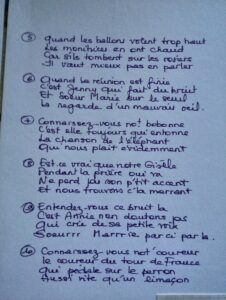 ⑤ Quand les ballons volent trop haut
Les monitrices en ont chaud
Car s'ils tombent sur les rosiers
Il vaut mieux pas en parler
⑥ Quand la réunion est finie
C'est Jenny qui fait du bruit
Et Soeur Marie sur le seuil
La regarde d'un mauvais oeil.
⑦ Connaissez-vous not' bobonne
C'est elle toujours qui entonne
La chanson de l'éléphant
Qui nous plait évidemment
⑧ Est-ce vrai que notre Gisèle
Pendant la prière oui va
Ne perd pas son p'tit accent
Et nous trouvons ç'la marrant
⑨ Entendez-vous ce bruit là
C'est Annie n'en doutons pas
Qui crie de sa petite voix
Soeurrr Marrrie par ci par là.
⑩ Connaissez-vous not' coureur
Le coureur du tour de France
Qui pédale sur le perron
Aussi vite qu'un limaçon